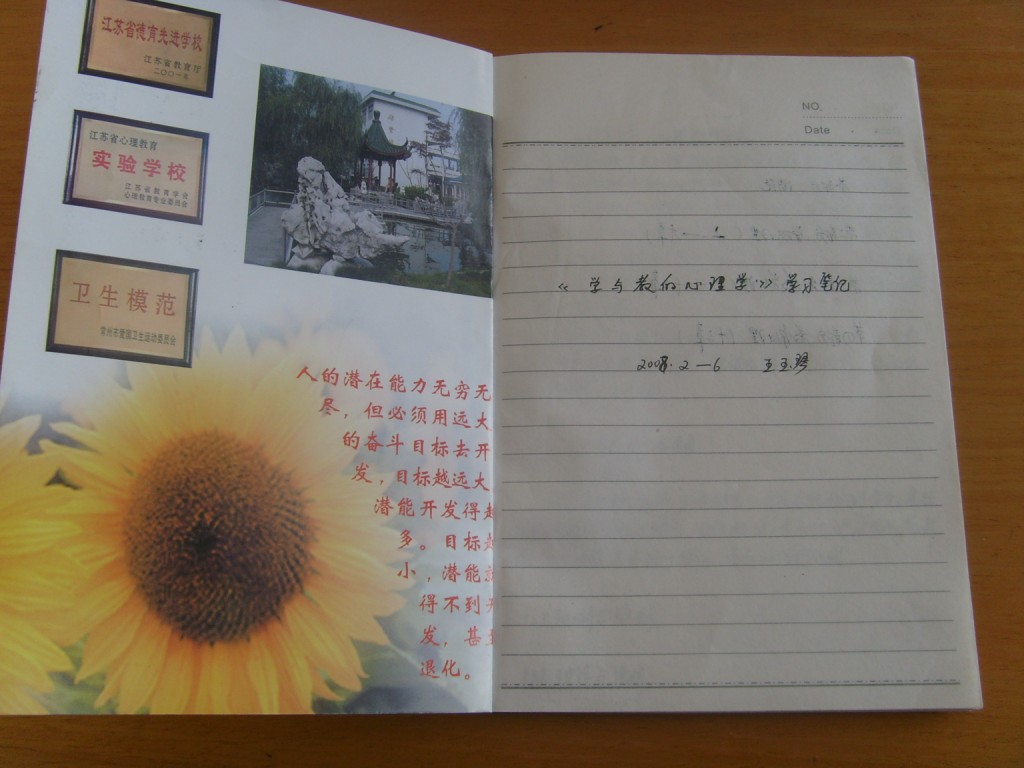 江苏省德育先进学校
江苏省教育厅
二〇〇一年
江苏省心理教育
实验学校
江苏省教育学会
心理教育专业委员会
卫生模范
常州市爱国卫生运动委员会
人的潜在能力无穷无
尽，但必须用远大
的奋斗目标去开
发，目标越远大
潜能开发得越
多。目标越
小，潜能就
得不到开
发，甚至
退化。
NO.
Date
《学与教的心理学》学习笔记
2008.2—6 王玉琴